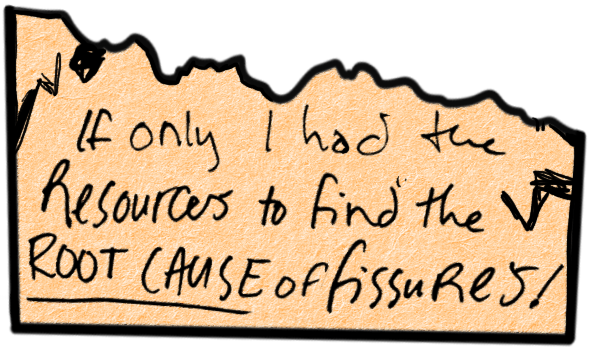 If only I had the
Resources to find the
ROOT CAUSE of fissures!